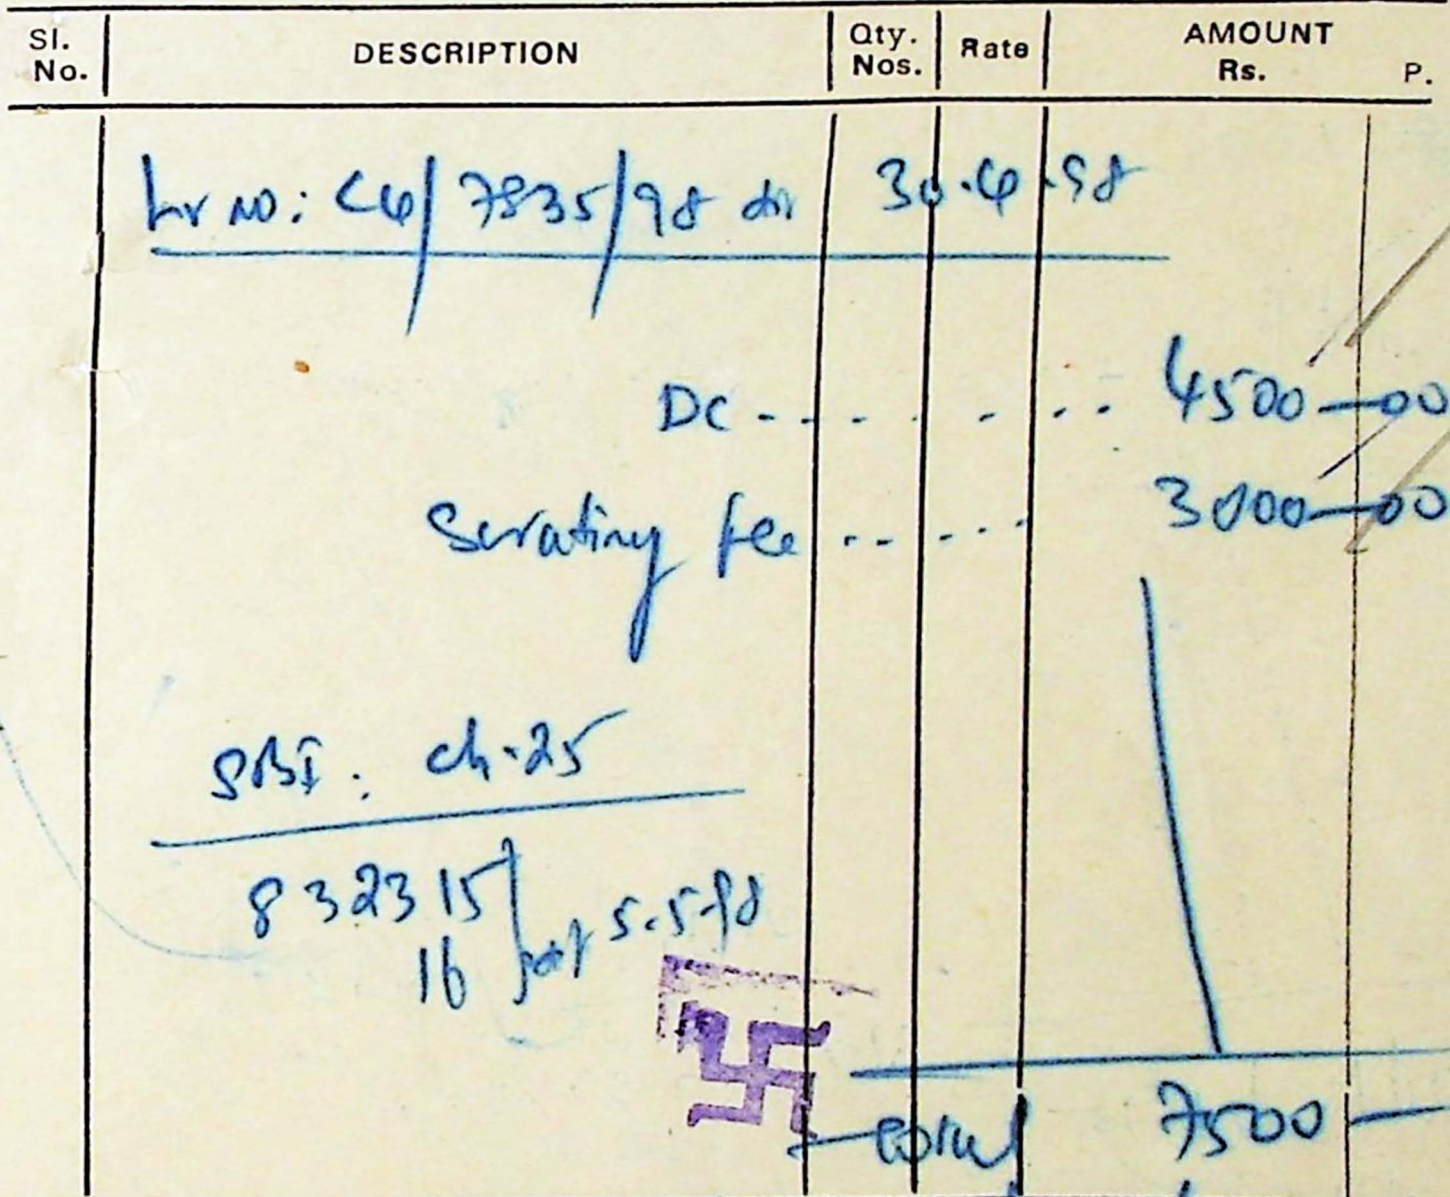 Sl. No. DESCRIPTION Qty. Nos. Rate AMOUNT Rs. P.
Lr no: C4/7835/98 dt 30.4.98
DC - - - - - - - 4500—00
Scrutiny fee - - - - - - 3000—00
SBI: ch.25
832315
16 5.5.98
Total 7500 —